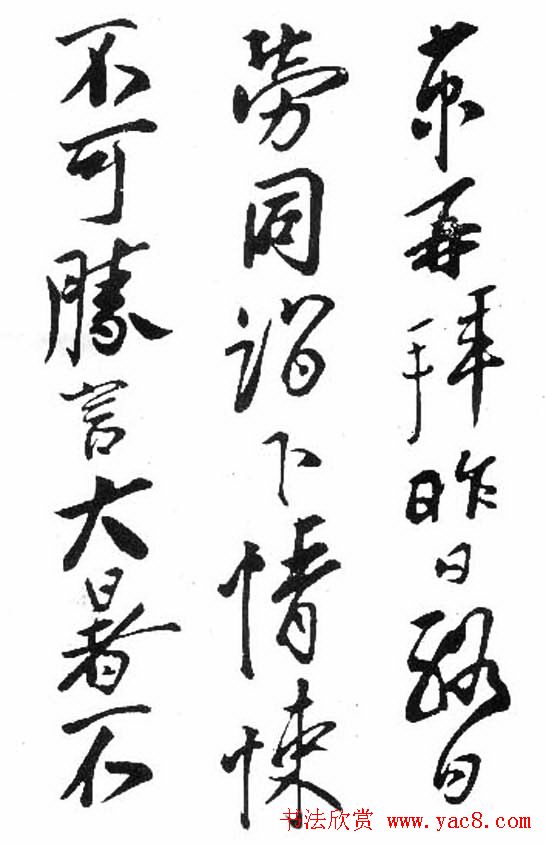 京再拜昨日日
勞同詣下情悚
不可勝言大暑不
书法欣赏 www.yac8.com